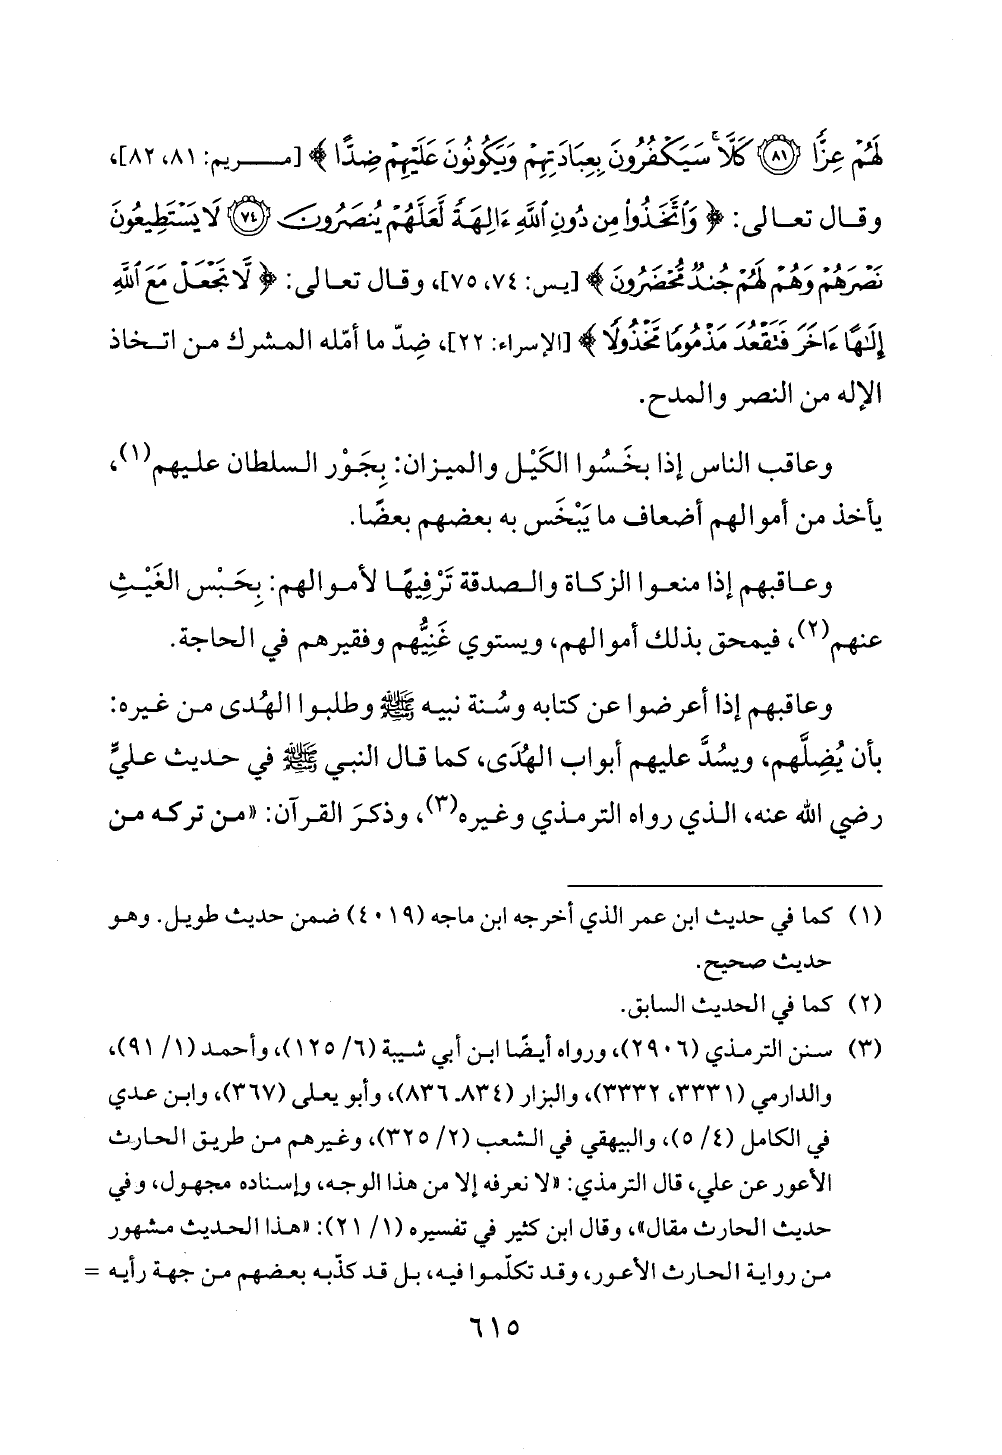 لَهُمْ عِزًّا ﴿٨١﴾ كَلَّا ۚ سَيَكْفُرُونَ بِعِبَادَتِهِمْ وَيَكُونُونَ عَلَيْهِمْ ضِدًّا ﴾ [مــريم: ٨١، ٨٢]،
وقـال تعـالى: ﴿ وَٱتَّخَذُوا۟ مِن دُونِ ٱللَّهِ ءَالِهَةً لَّعَلَّهُمْ يُنصَرُونَ ﴿٧٤﴾ لَا يَسْتَطِيعُونَ
نَصْرَهُمْ وَهُمْ لَهُمْ جُندٌ مُّحْضَرُونَ ﴾ [يس: ٧٤، ٧٥]، وقـال تعـالى: ﴿ لَّا تَجْعَلْ مَعَ ٱللَّهِ
إِلَٰهًا ءَاخَرَ فَتَقْعُدَ مَذْمُومًا مَّخْذُولًا ﴾ [الإسراء: ٢٢]، ضِدّ ما أمّله المشرك من اتـخاذ
الإله من النصر والمدح.
وعاقب الناس إذا بخَسُوا الكَيْل والميزان: بِجَوْر السلطان عليهم(١)،
يأخذ من أموالهم أضعاف ما يَبْخَس به بعضهم بعضًا.
وعـاقبهم إذا منعـوا الزكـاة والـصدقة تَرْفِيهًـا لأمـوالهم: بِحَبْـس الغَيْـثِ
عنهم(٢)، فيمحق بذلك أموالهم، ويستوي غَنِيُّهم وفقيرهم في الحاجة.
وعاقبهم إذا أعرضوا عن كتابه وسُنة نبيه ﷺ وطلبوا الهُدى من غيره:
بأن يُضِلَّهم، ويسُدَّ عليهم أبواب الهُدَى، كما قال النبي ﷺ في حديث عليٍّ
رضي الله عنه، الـذي رواه الترمذي وغيره(٣)، وذكرَ القرآن: «من تركه من
(١) كما في حديث ابن عمر الذي أخرجه ابن ماجه (٤٠١٩) ضمن حديث طويل. وهو
حديث صحيح.
(٢) كما في الحديث السابق.
(٣) سنن الترمذي (٢٩٠٦)، ورواه أيضًا ابن أبي شيبة (٦/ ١٢٥)، وأحمد (١/ ٩١)،
والدارمي (٣٣٣١، ٣٣٣٢)، والبزار (٨٣٤ـ ٨٣٦)، وأبو يعلى (٣٦٧)، وابن عدي
في الكامل (٤/ ٥)، والبيهقي في الشعب (٢/ ٣٢٥)، وغيرهم من طريق الحارث
الأعور عن علي، قال الترمذي: «لا نعرفه إلا من هذا الوجه، وإسناده مجهول، وفي
حديث الحارث مقال»، وقال ابن كثير في تفسيره (١/ ٢١): «هـذا الحديث مشهور
من رواية الحارث الأعور، وقد تكلّموا فيه، بل قد كذّبه بعضهم من جهة رأيه =
٦١٥